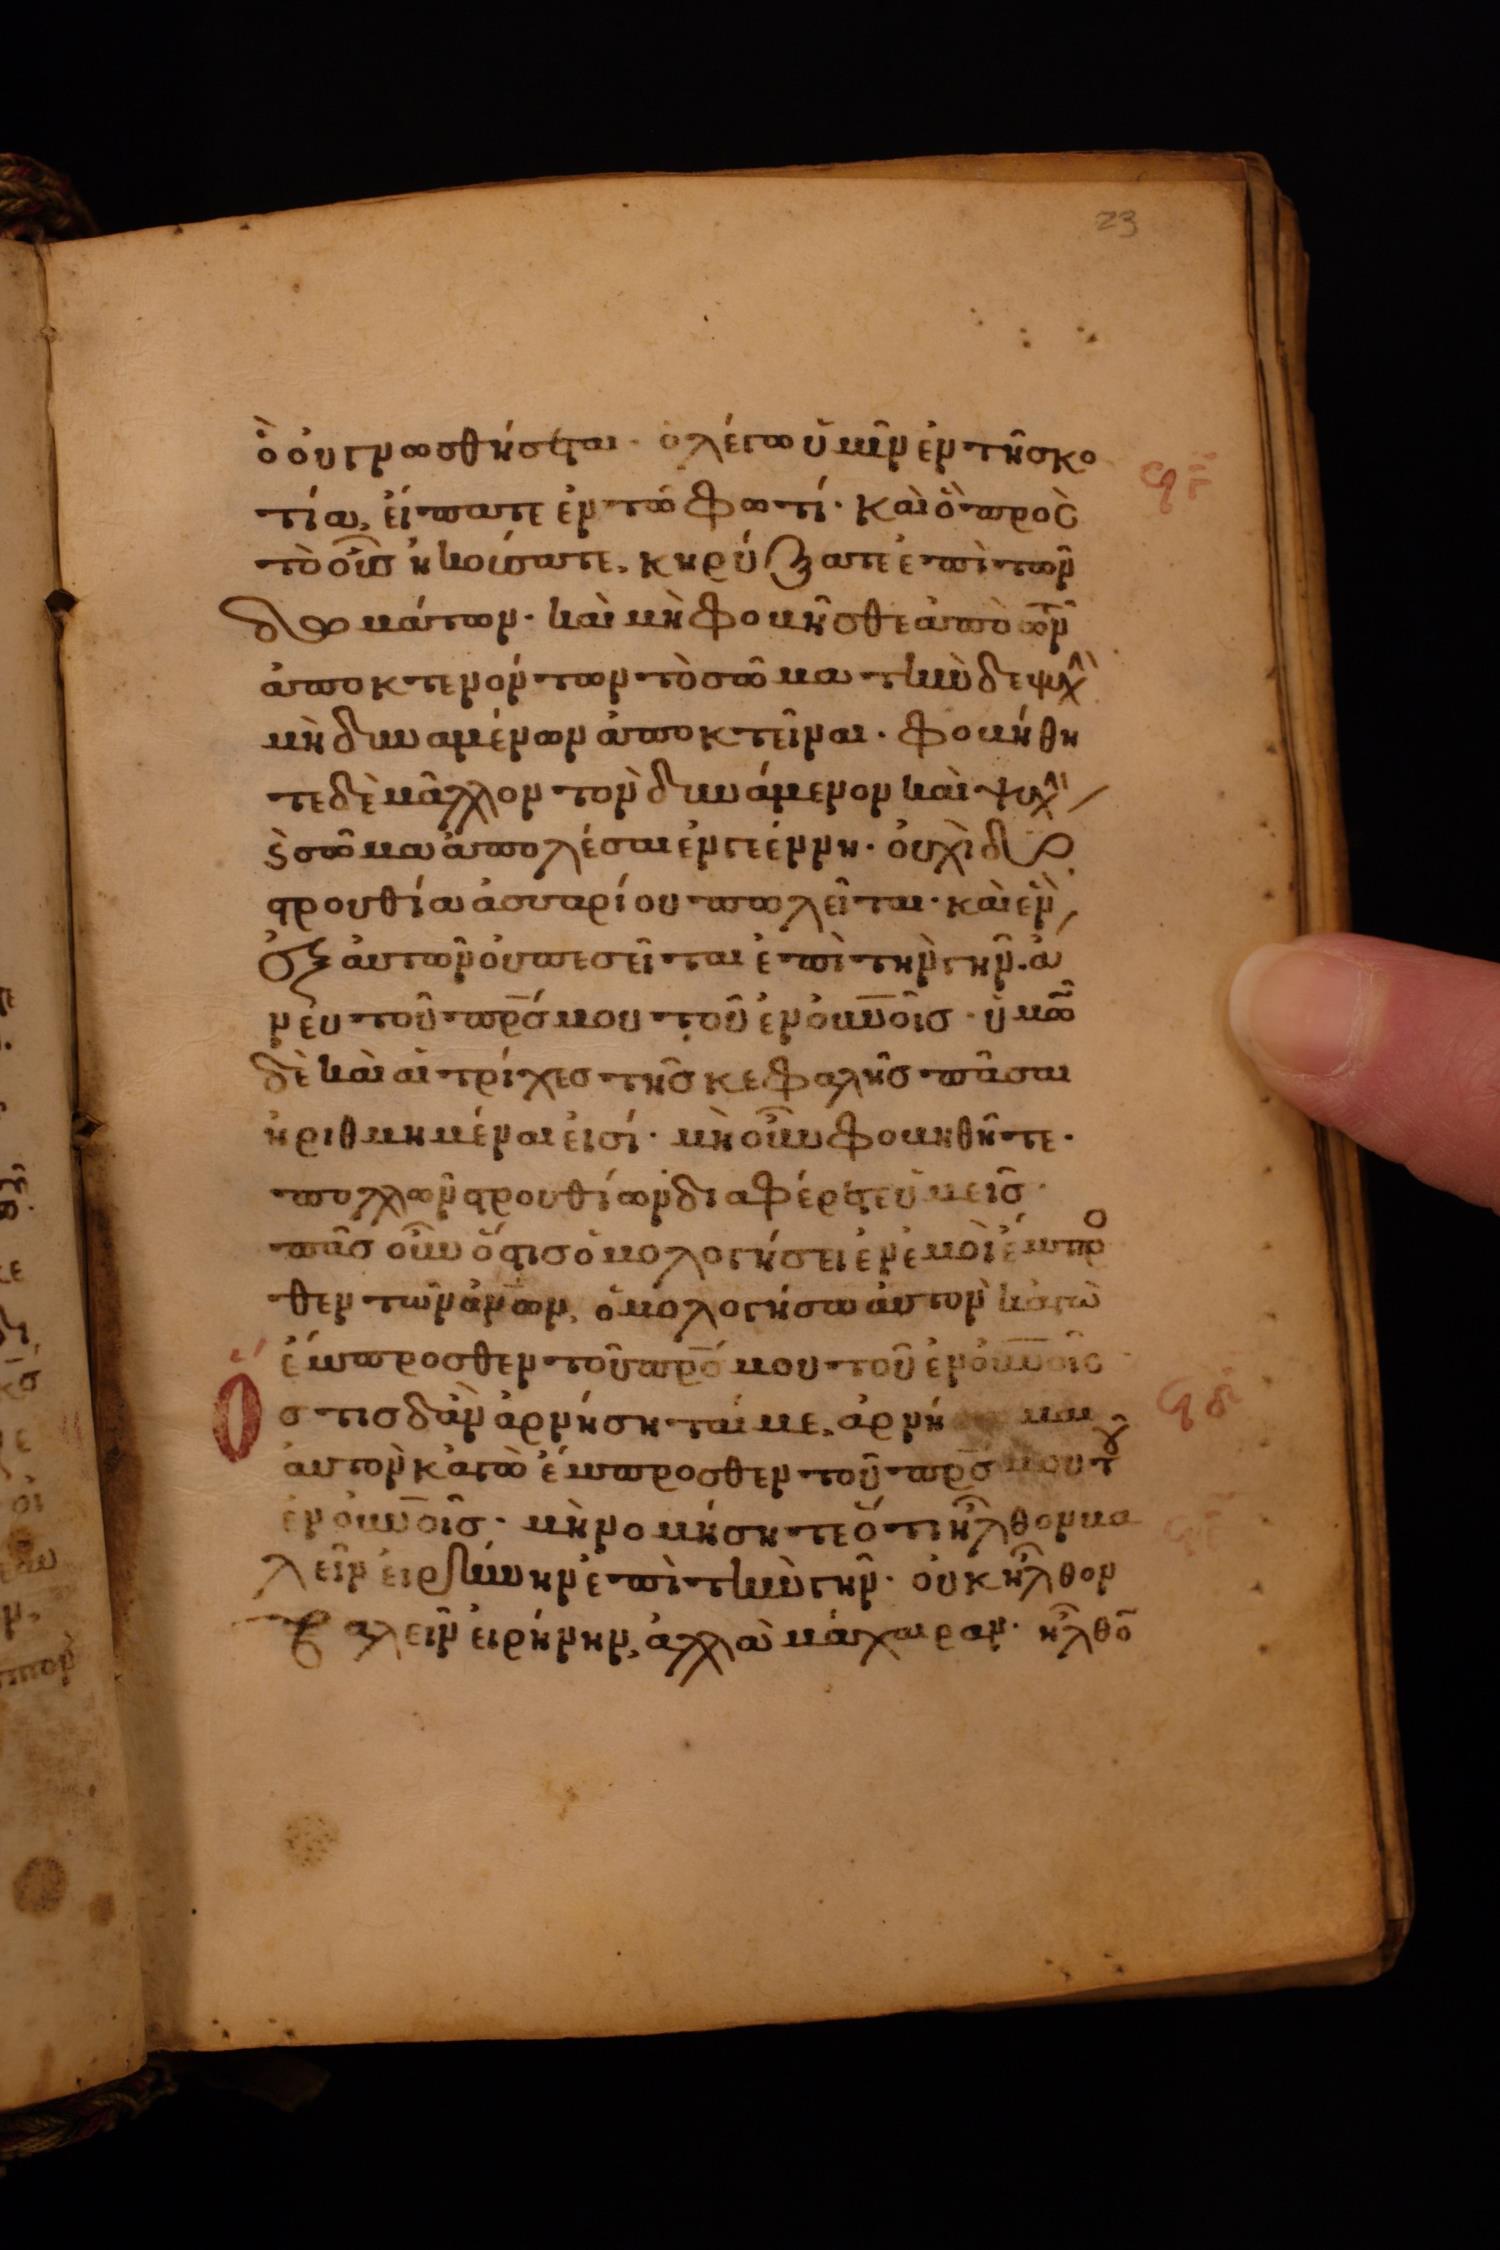 23
ὃ οὐ γνωσθήσεται· ὃ λέγω ὑμῖν ἐν τῇ σκο
τία, εἴπατε ἐν τῶ φωτί· καὶ ὃ πρὸς
τὸ οὖς ἠκούσατε, κηρύξατε ἐπὶ τῶν
δωμάτων· καὶ μὴ φοβῆσθε ἀπὸ τῶν
ἀποκτενόντων τὸ σῶμα τὴν δὲ ψυχὴν
μὴ δυναμένων ἀποκτεῖναι· φοβήθη
τε δὲ μᾶλλον τὸν δυνάμενον καὶ ψυχὴν
ϗ σῶμα ἀπολέσαι ἐν γεέννη· οὐχὶ δύο
στρουθία ἀσσαρίου πωλεῖται· καὶ ἓν
ἐξ αὐτῶν οὐ πεσεῖται ἐπὶ τὴν γῆν· ἄ
νευ τοῦ πρς μου τοῦ ἐν οὐνοῖς· ὑμῶν
δὲ καὶ αἱ τρίχες τῆς κεφαλῆς πᾶσαι
ἠριθμημέναι εἰσί· μὴ οὖν φοβηθῆτε·
πολλῶν στρουθίων διαφέρετε ὑμεῖς·
πᾶς οὖν ὅστις ὁμολογήσει ἐν ἐμοὶ ἔμπρο
θεν τῶν ἀνων, ὁμολογήσω αὐτὸν κἀγὼ
ἔμπροσθεν τοῦ πρς μου τοῦ ἐν οὐνοῖς
Ὅστις δ' ἂν ἀρνήσηταί με, ἀρνή μαι
αὐτὸν κἀγὼ ἔμπροσθεν τοῦ πρς μου τοῦ
ἐν οὐνοῖς· μὴ νομήσητε ὅτι ἦλθον βα
λεῖν εἰρήνην ἐπὶ τὴν γῆν· οὐκ ἦλθον
βαλεῖν εἰρήνην, ἀλλὰ μάχαιραν· ἦλθον